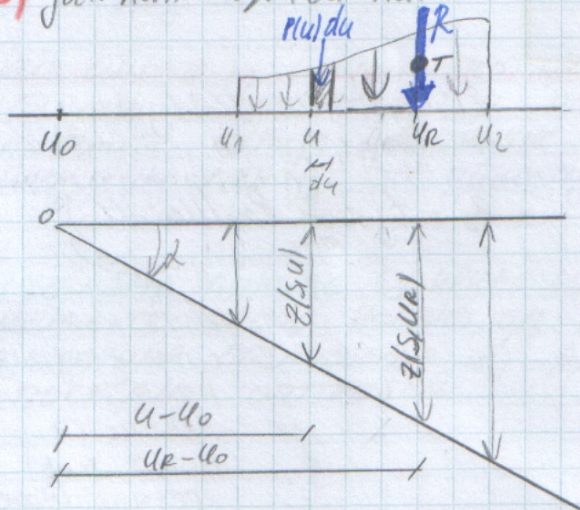 p(u)du
R
T
u0 u1 u uR u2
du
0
α
z(s,u)
z(s,uR)
u-u0
uR-u0